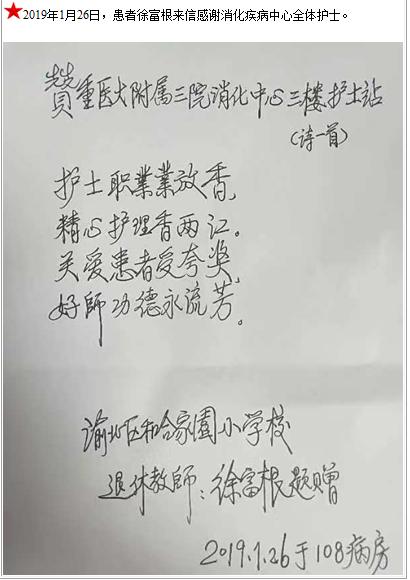 ★2019年1月26日，患者徐富根来信感谢消化疾病中心全体护士。
赞重医大附属三院消化中心三楼护士站
(诗一首)
护士职業業放香，
精心护理香两江。
关爱患者受夸奖，
好師功德永流芳。
渝北区和合家園小学校
退休教師：徐富根题赠
2019.1.26于108病房